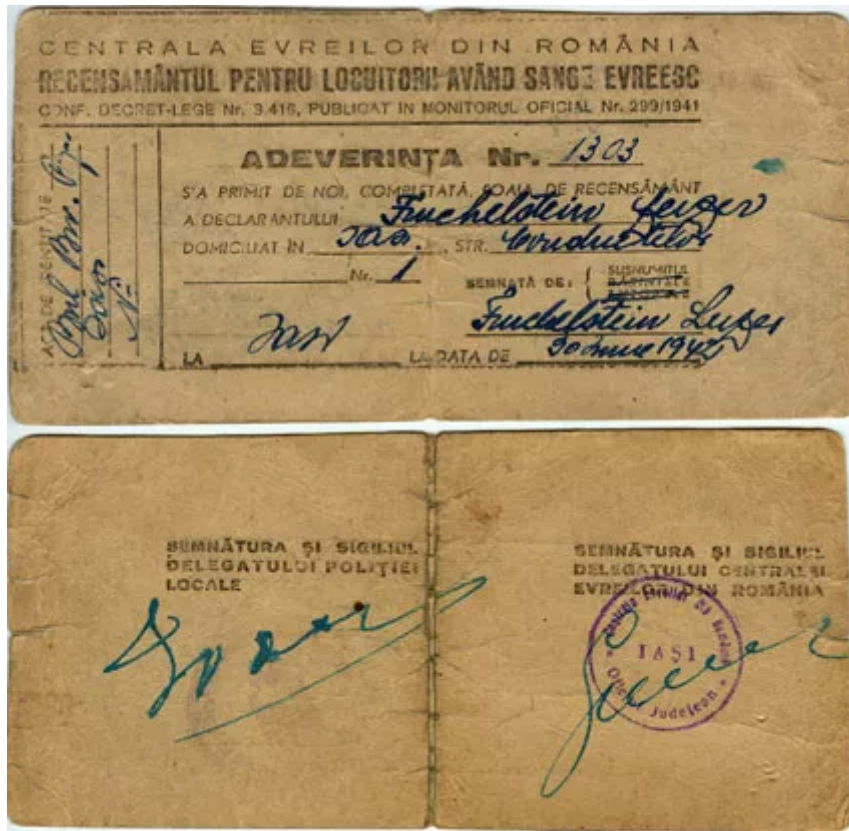 CENTRALA EVREILOR DIN ROMÂNIA
RECENSAMÂNTUL PENTRU LOCUITORII AVÂND SANGE EVREESC
CONF. DECRET-LEGE Nr. 3.416, PUBLICAT IN MONITORUL OFICIAL Nr. 299/1941
ADEVERINȚA Nr. 1303
S'A PRIMIT DE NOI, COMPLETATĂ, FOAIA DE RECENSĂMÂNT
A DECLARANTULUI Fruchelstein Leizer
DOMICILIAT ÎN Iași, STR. Conductelor
Nr. 1 SEMNATĂ DE: { SUSNUMITUL
Fruchelstein Leizer
LA Iași LA DATA DE 30 1942
ACT DE IDENTITATE
SEMNĂTURA ȘI SIGILIUL
DELEGATULUI POLIȚIEI
LOCALE
SEMNĂTURA ȘI SIGILIUL
DELEGATULUI CENTRALEI
EVREILOR DIN ROMÂNIA
Centrala Evreilor din România
IAȘI
Oficiul Județean